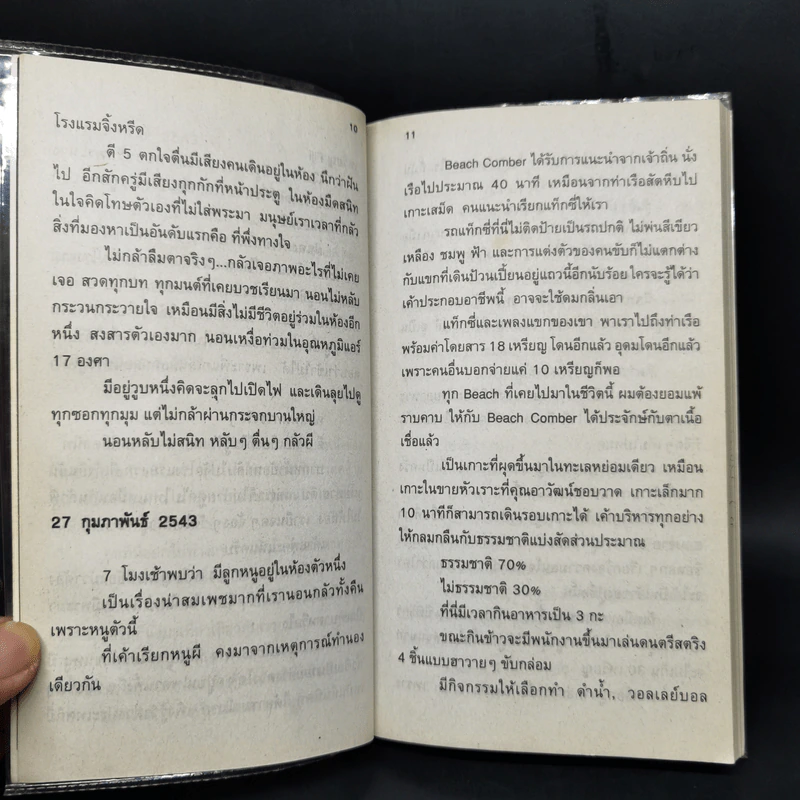 โรงแรมจิ้งหรีด
10
ตี 5 ตกใจตื่นมีเสียงคนเดินอยู่ในห้อง นึกว่าฝัน
ไป อีกสักครู่มีเสียงกุกกักที่หน้าประตู ในห้องมืดสนิท
ในใจคิดโทษตัวเองที่ไม่ใส่พระมา มนุษย์เราเวลาที่กลัว
สิ่งที่มองหาเป็นอันดับแรกคือ ที่พึ่งทางใจ
ไม่กล้าลืมตาจริงๆ...กลัวเจอภาพอะไรที่ไม่เคย
เจอ สวดทุกบท ทุกมนต์ที่เคยบวชเรียนมา นอนไม่หลับ
กระวนกระวายใจ เหมือนมีสิ่งไม่มีชีวิตอยู่ร่วมในห้องอีก
หนึ่ง สงสารตัวเองมาก นอนเหงื่อท่วมในอุณหภูมิแอร์
17 องศา
มีอยู่วูบหนึ่งคิดจะลุกไปเปิดไฟ และเดินลุยไปดู
ทุกซอกทุกมุม แต่ไม่กล้าผ่านกระจกบานใหญ่
นอนหลับไม่สนิท หลับๆ ตื่นๆ กลัวผี
27 กุมภาพันธ์ 2543
7 โมงเช้าพบว่า มีลูกหนูอยู่ในห้องตัวหนึ่ง
เป็นเรื่องน่าสมเพชมากที่เรานอนกลัวทั้งคืน
เพราะหนูตัวนี้
ที่เค้าเรียกหนูผี คงมาจากเหตุการณ์ทำนอง
เดียวกัน
11
Beach Comber ได้รับการแนะนำจากเจ้าถิ่น นั่ง
เรือไปประมาณ 40 นาที เหมือนจากท่าเรือสัตหีบไป
เกาะเสม็ด คนแนะนำเรียกแท็กซี่ให้เรา
รถแท็กซี่ที่นี่ไม่ติดป้ายเป็นรถปกติ ไม่พ่นสีเขียว
เหลือง ชมพู ฟ้า และการแต่งตัวของคนขับก็ไม่แตกต่าง
กับแขกที่เดินป้วนเปี้ยนอยู่แถวนี้อีกนับร้อย ใครจะรู้ได้ว่า
เค้าประกอบอาชีพนี้ อาจจะใช้ดมกลิ่นเอา
แท็กซี่และเพลงแขกของเขา พาเราไปถึงท่าเรือ
พร้อมค่าโดยสาร 18 เหรียญ โดนอีกแล้ว อุดมโดนอีกแล้ว
เพราะคนอื่นบอกจ่ายแค่ 10 เหรียญก็พอ
ทุก Beach ที่เคยไปมาในชีวิตนี้ ผมต้องยอมแพ้
ราบคาบ ให้กับ Beach Comber ได้ประจักษ์กับตาเนื้อ
เชื่อแล้ว
เป็นเกาะที่ผุดขึ้นมาในทะเลหย่อมเดียว เหมือน
เกาะในขายหัวเราะที่คุณอาวัฒน์ชอบวาด เกาะเล็กมาก
10 นาทีก็สามารถเดินรอบเกาะได้ เค้าบริหารทุกอย่าง
ให้กลมกลืนกับธรรมชาติแบ่งสัดส่วนประมาณ
ธรรมชาติ 70%
ไม่ธรรมชาติ 30%
ที่นี่มีเวลากินอาหารเป็น 3 กะ
ขณะกินข้าวจะมีพนักงานขึ้นมาเล่นดนตรีสตริง
4 ชิ้นแบบฮาวายๆ ขับกล่อม
มีกิจกรรมให้เลือกทำ ดำน้ำ, วอลเลย์บอล